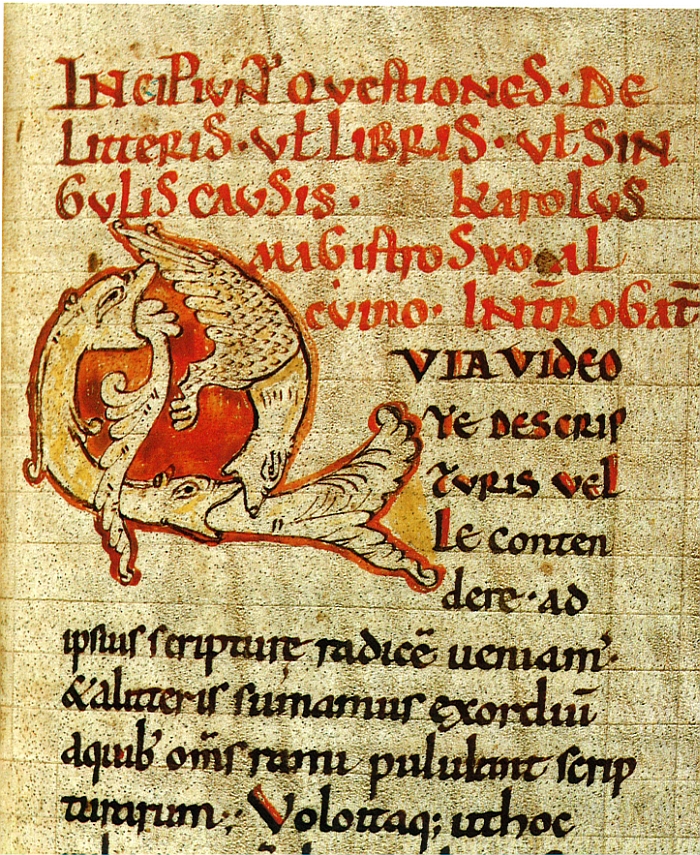 INCIPIUNT QUESTIONES· DE
LITTERIS· Vł LIBRIS· Vł SIN
GULIS CAUSIS· KAROLUS
MAGISTRO SUO AL
CUINO· INTROGAT̄
Q VIA VIDEO
TE DESCRIP
TURIS VEL
LE conten
dere· ad
ipsius scripturę radicē ueniam'·
& a litteris sumamus exordiū
a quib' om̄s rami pululant scrip
turarum·; Volo itaq; ut hoc